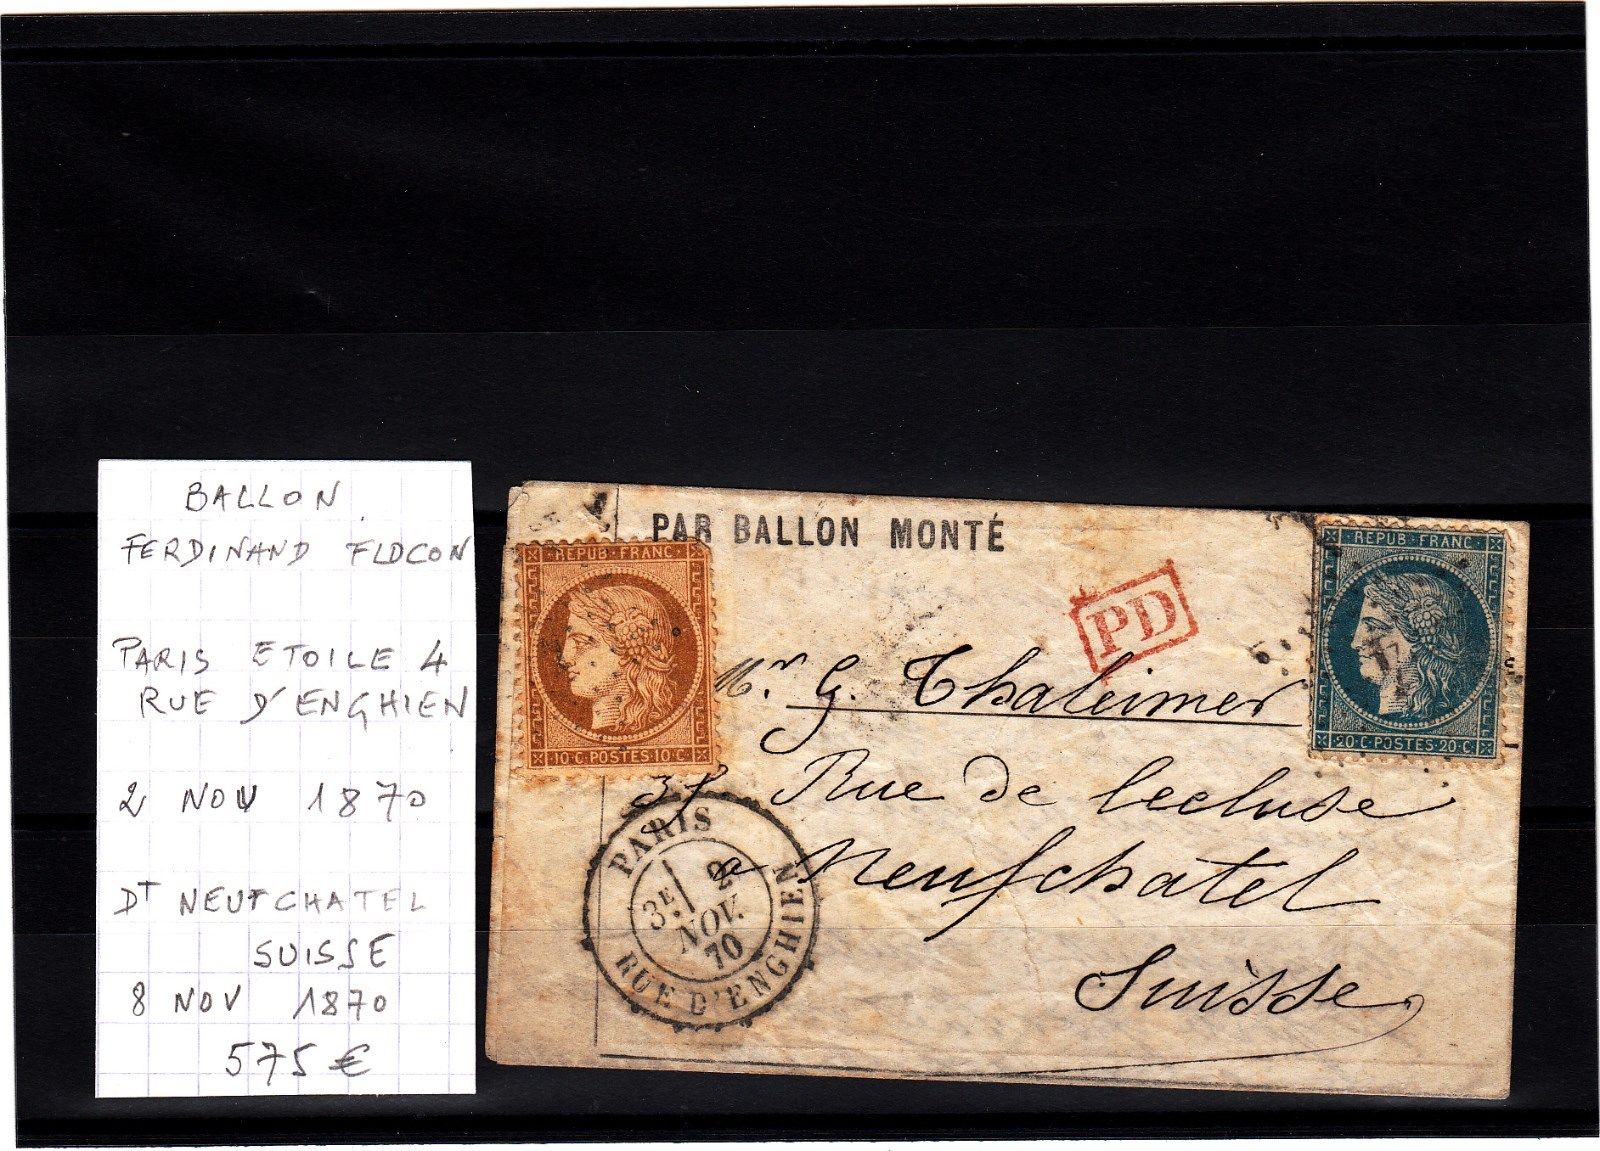 BALLON
FERDINAND FLOCON
PARIS ETOILE 4
RUE D'ENGHIEN
2 NOV 1870
DT NEUFCHATEL
SUISSE
8 NOV 1870
575 €
PAR BALLON MONTÉ
REPUB FRANC
10 C POSTES 10 C
PD
REPUB FRANC
20 C POSTES 20 C
Mr. G. Thaleimer
Rue de lecluse
a Neufchatel
Suisse
PARIS
3E 2
NOV.
70
RUE D'ENGHIEN